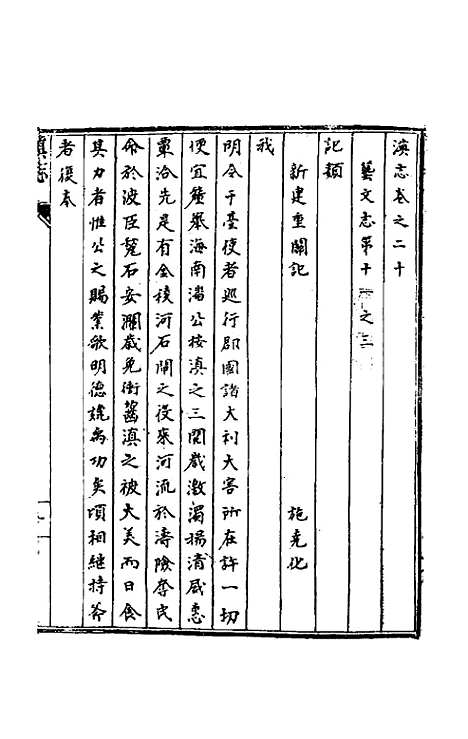 滇志卷之二十
藝文志第十 之三
記類
新建重關記 施堯化
我
明令于臺使者巡行郡國諸大利大害所在許一切
便宜釐舉海南潘公按滇之三閱歲激濁揚清威惠
覃洽先是有金稜河石閘之役來河流於濤險奪民
命於波臣甃石安瀾歲免衝齧滇之被大美而日食
其力者惟公之賜業歌明德境為功矣頃相繼持斧
者復奉
滇志